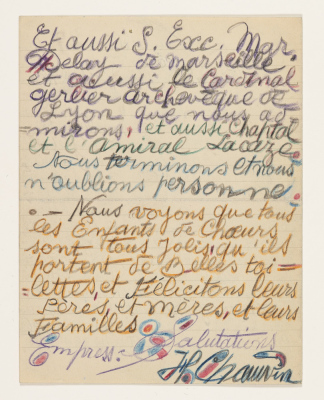 Et aussi S. Exc. Mgr.
Delay de marseille
et aussi le Cardinal
gerlier archevêque de
Lyon que nous ad-
mirons, et aussi chaptal
et l'amiral Lacaze.
Nous terminons et nous
n'oublions personne.
.- Nous voyons que tous
les Enfants de Chœurs
sont tous Jolis, qu'ils
portent de Belles toi-
=lettes, et félicitons leurs
Pères, et mères, et leurs
Familles
Empress: Salutations